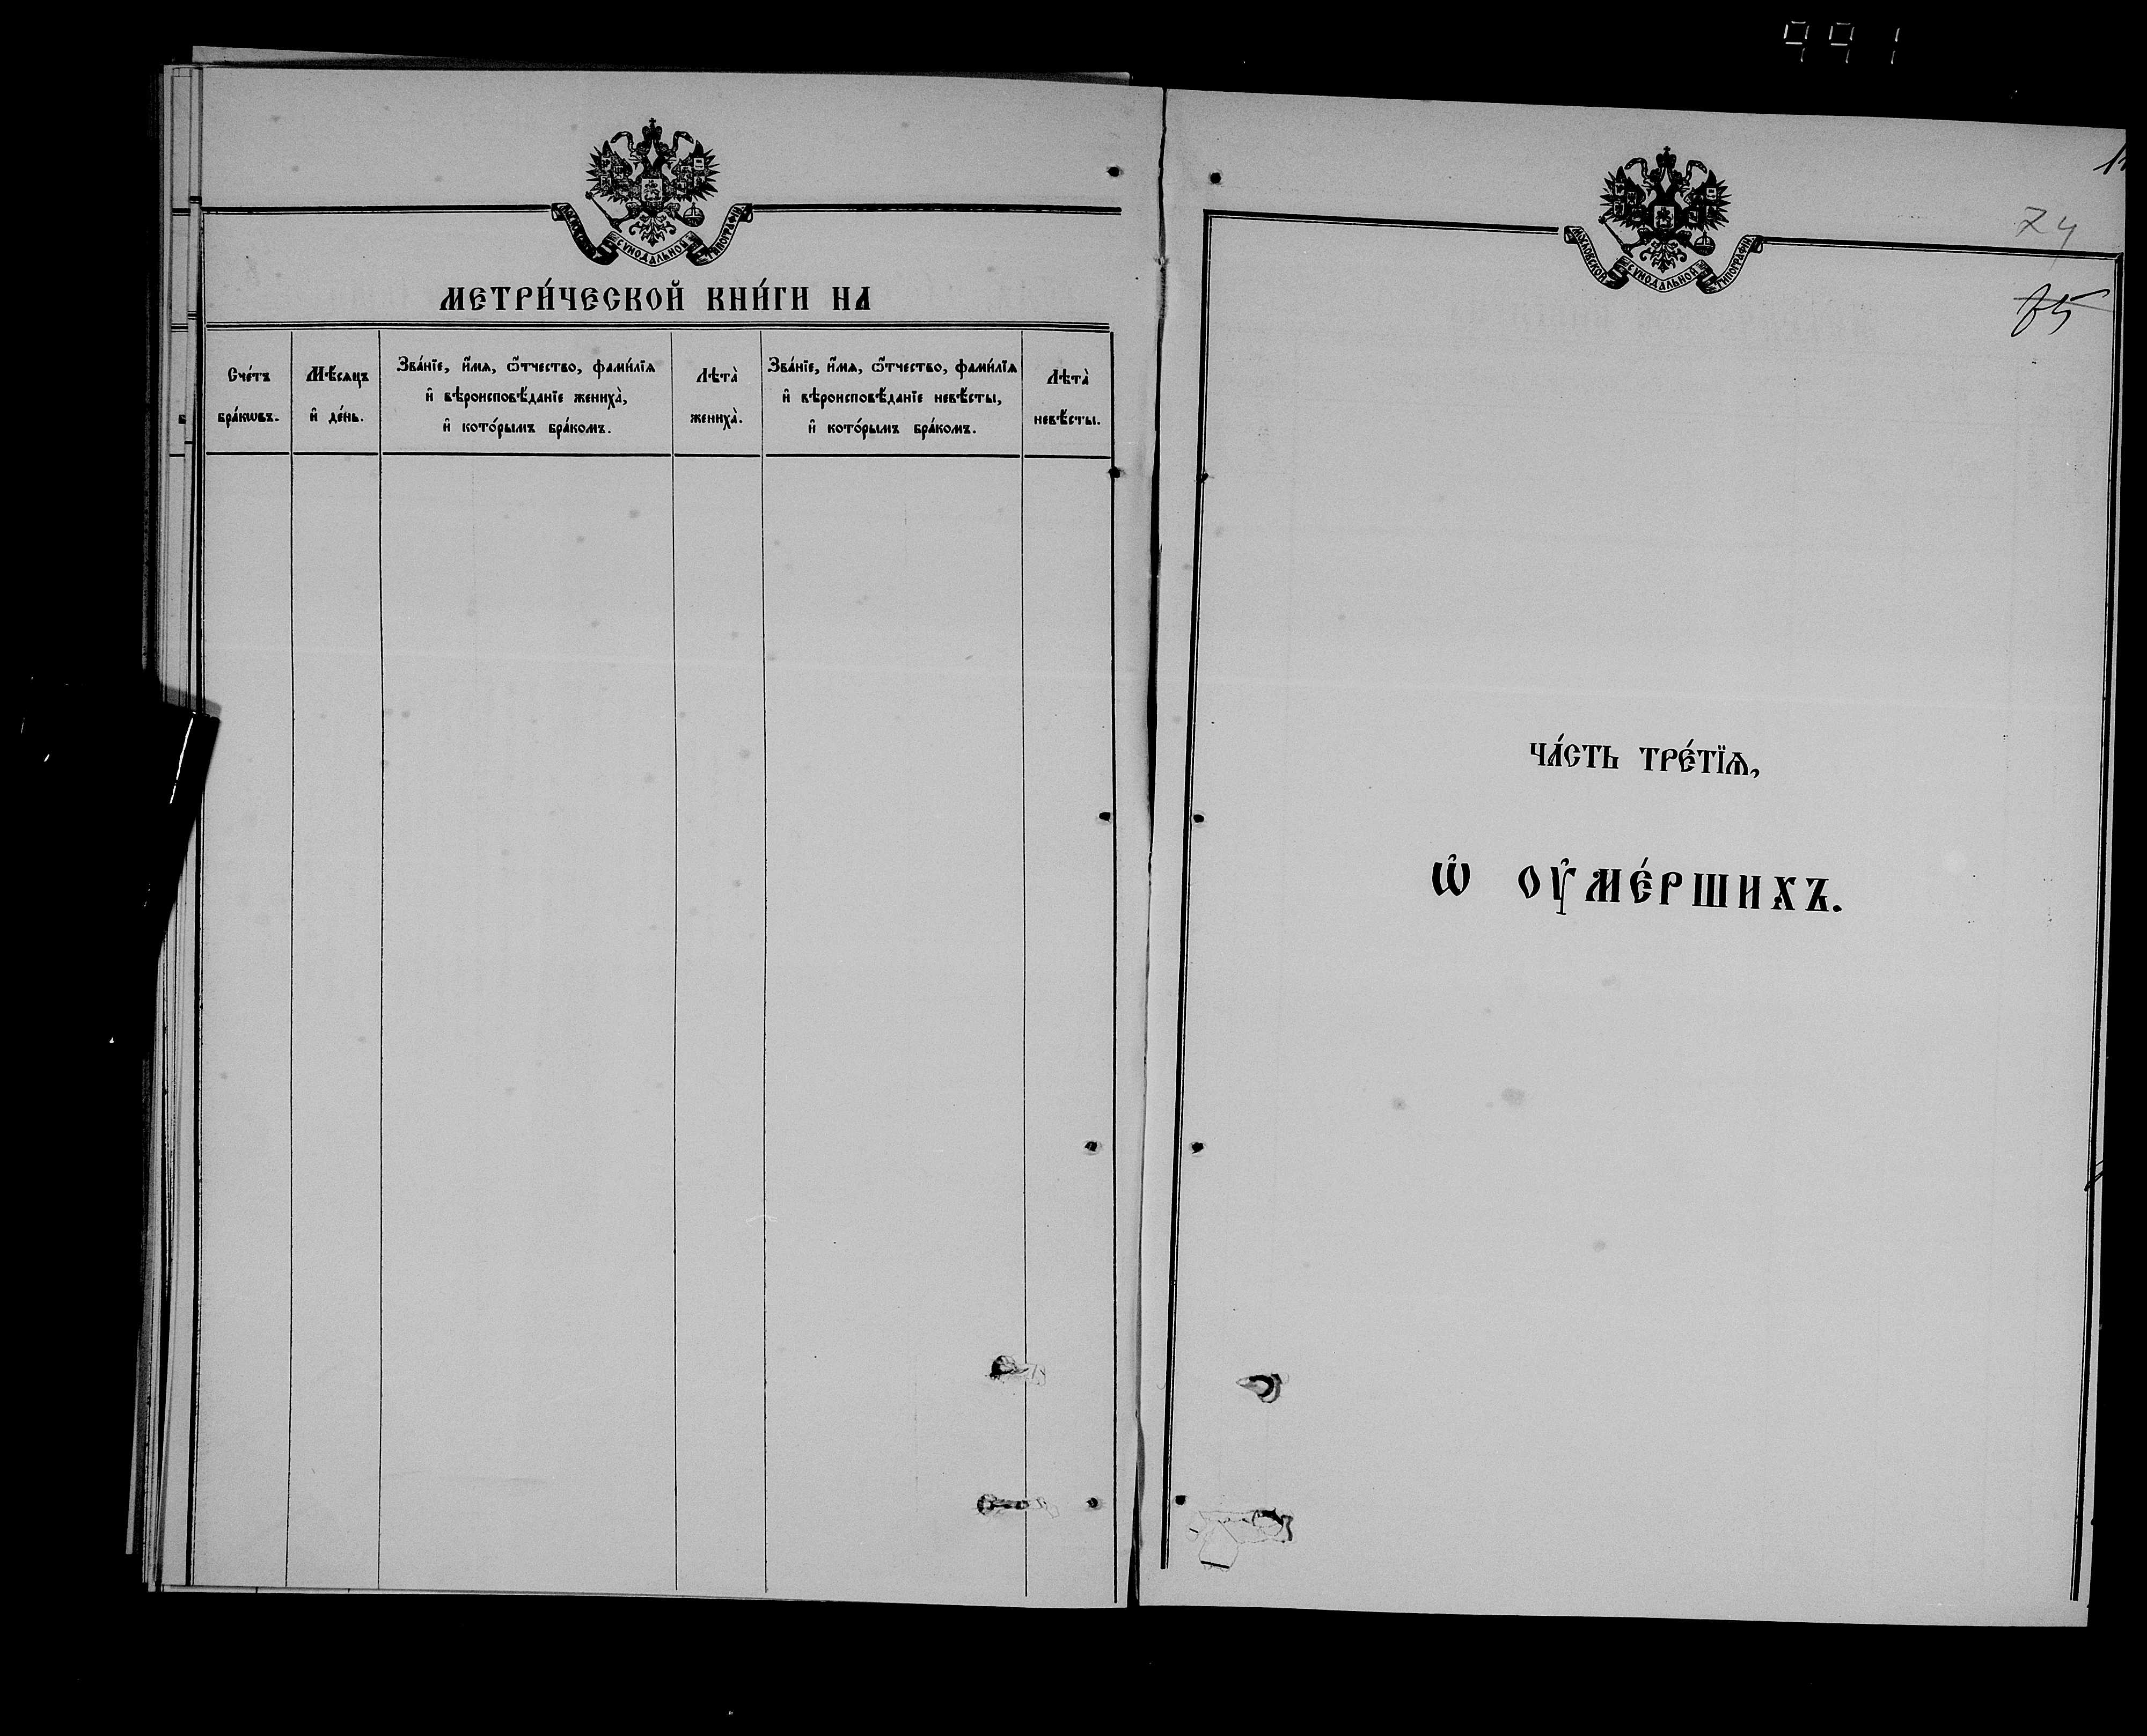 991
МОСКОВСКОЙ СѴНОДАЛЬНОЙ ТИПОГРАФІИ
МЕТРИ́ЧЕСКОЙ КНИ́ГИ НА
Сче́тъ
бра́кѡвъ.
Мѣ́сяцъ
и҆ де́нь.
Зва́нїе, и҆́мѧ, ѻ҆́тчество, фами́лїѧ
и҆ вѣроисповѣ́данїе жениха̀,
и҆ кото́рымъ бра́комъ.
Лѣта̀
жениха̀.
Зва́нїе, и҆́мѧ, ѻ҆́тчество, фами́лїѧ
и҆ вѣроисповѣ́данїе невѣ́сты,
и҆ кото́рымъ бра́комъ.
Лѣта̀
невѣ́сты.
МОСКОВСКОЙ СѴНОДАЛЬНОЙ ТИПОГРАФІИ
74
ЧА́СТЬ ТРЕ́ТЇѦ,
Ѡ҆ ОУ҆МЕ́РШИХЪ.